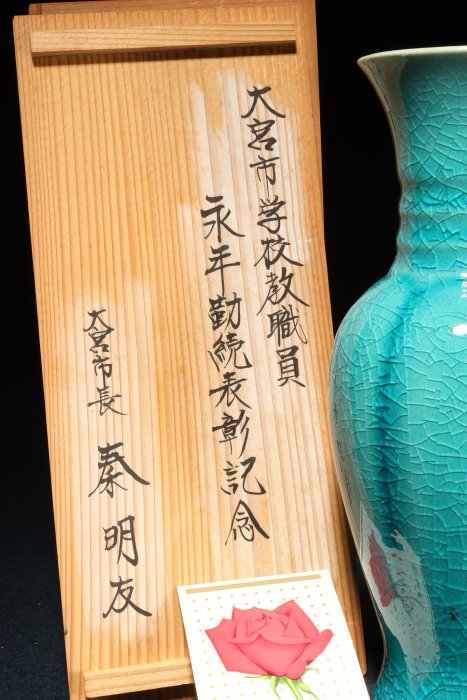 大宮市学校教職員
永年勤続表彰記念
大宮市長
秦明友